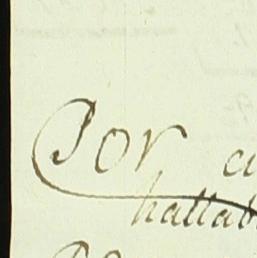 Por a
hallab